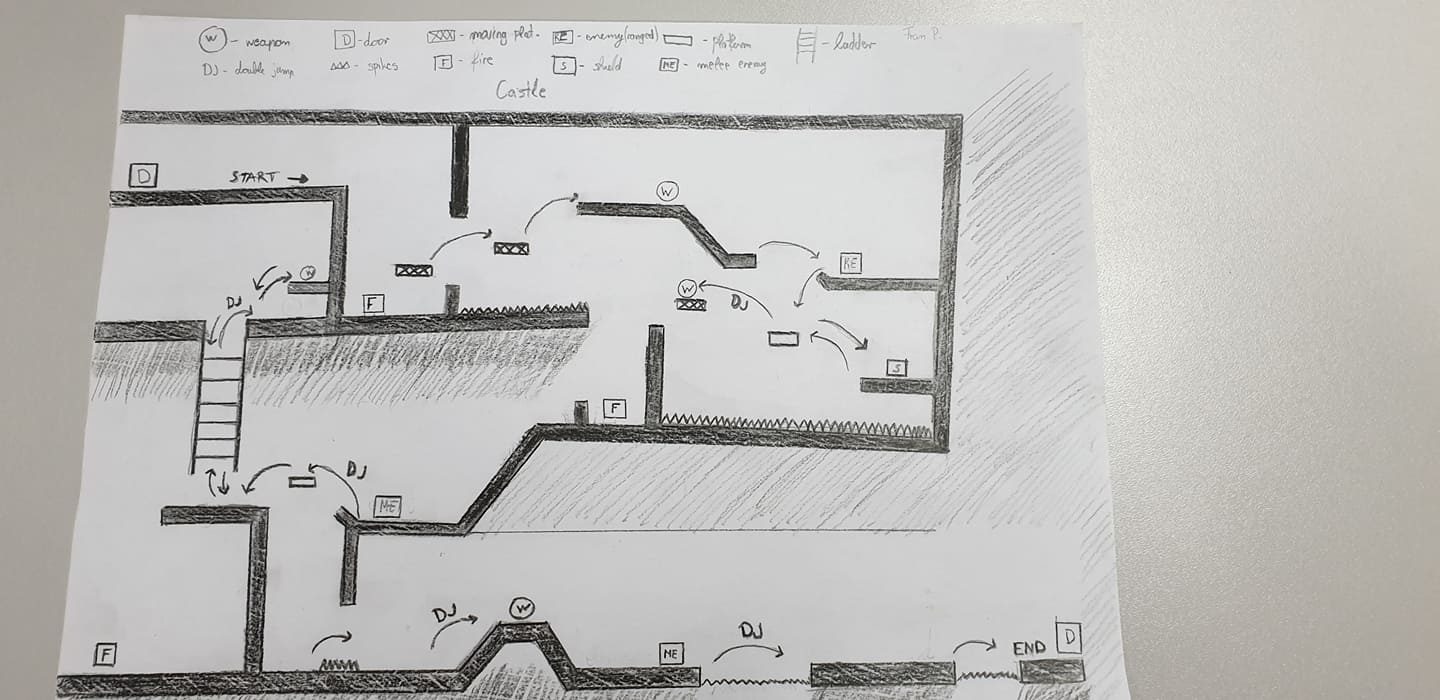 W - weapon D - door XXX - moving plat. RE - enemy(ranged) - platform - ladder Fran P.
DJ - double jump - spikes F - fire S - shield ME - melee enemy
Castle
D START
W
W
RE
DJ
F
W
DJ
S
F
DJ
ME
DJ
W
F
ME
DJ
END D